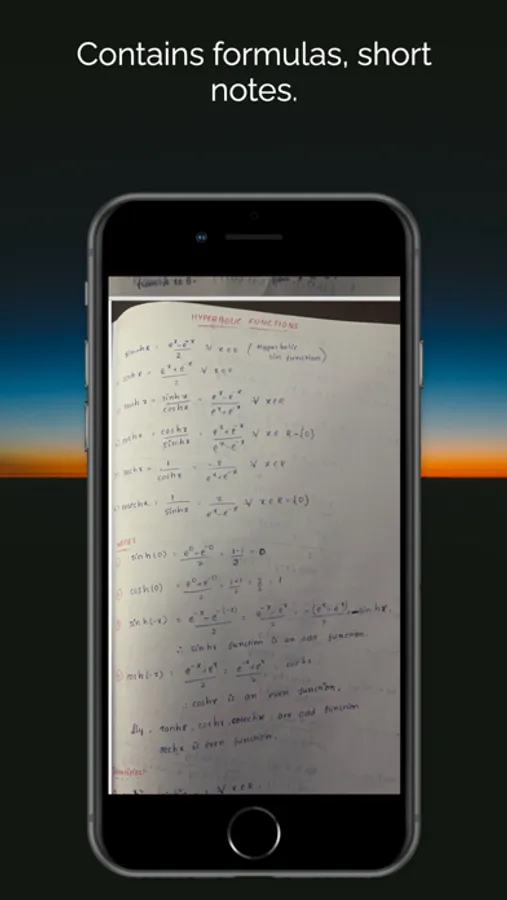 Contains formulas, short
notes.
HYPERBOLIC FUNCTIONS
sinhx = e^x - e^-x / 2 ∀ x∈R (Hyperbolic sin function)
coshx = e^x + e^-x / 2 ∀ x∈R
tanhx = sinhx / coshx = e^x - e^-x / e^x + e^-x ∀ x∈R
cothx = coshx / sinhx = e^x + e^-x / e^x - e^-x ∀ x∈ R-{0}
sechx = 1 / coshx = 2 / e^x + e^-x ∀ x∈R
cosechx = 1 / sinhx = 2 / e^x - e^-x ∀ x∈R-{0}
① sinh(0) = e^0 - e^-0 / 2 = 1-1 / 2 = 0
② cosh(0) = e^0 + e^-0 / 2 = 1+1 / 2 = 2/2 = 1
③ sinh(-x) = e^-x - e^-(-x) / 2 = e^-x - e^x / 2 = -(e^x - e^-x) / 2 = -sinhx.
∴ sinhx function is an odd function.
④ cosh(-x) = e^-x + e^x / 2 = e^-x + e^x / 2 = coshx
∴ coshx is an even function.
lly, tanhx, cothx, cosechx are odd function
sechx is even function.
∀ x∈R.